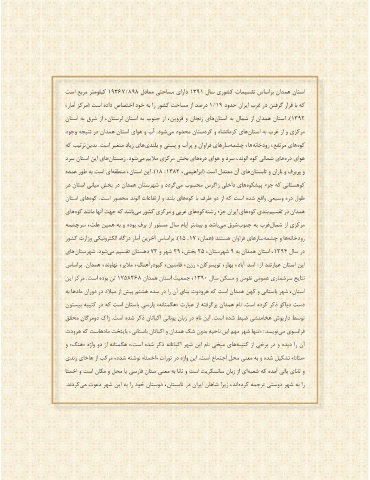 استان همدان براساس تقسیمات کشوری سال ۱۳۹۱ دارای مساحتی معادل ۱۹۳۶۷/۸۹۸ کیلومتر مربع است
که با قرار گرفتن در غرب ایران حدود ۱/۱۹ درصد از مساحت کشور را به خود اختصاص داده است (مرکز آمار،
۱۳۹۲). استان همدان از شمال به استان‌های زنجان و قزوین، از جنوب به استان لرستان، از شرق به استان
مرکزی و از غرب به استان‌های کرمانشاه و کردستان محدود می‌شود. آب و هوای استان همدان در نتیجه وجود
کوه‌های مرتفع، رودخانه‌ها، چشمه‌سارهای فراوان و پرآب و پستی و بلندی‌های زیاد متغیر است. بدین‌ترتیب که
هوای دره‌های شمالی کوه الوند، سرد و هوای دره‌های بخش مرکزی ملایم می‌شود. زمستان‌های این استان سرد
و پربرف و باران و تابستان‌های آن معتدل است (ابراهیمی، ۱۳۸۴: ۱۸). این استان، منطقه‌ای است به طور عمده
کوهستانی که جزء پیشکوه‌های داخلی زاگرس محسوب می‌گردد و شهرستان همدان در بخش میانی استان در
طول دره وسیعی واقع شده است که از دو طرف با کوه‌های بلند و ارتفاعات الوند محصور است. کوه‌های استان
همدان در تقسیم‌بندی کوه‌های ایران جزء رشته کوه‌های غربی و مرکزی کشور می‌باشد که جهت آنها مانند کوه‌های
مرکزی از شمال‌غرب به جنوب‌شرق می‌باشد و بیشتر ایام سال مستور از برف بوده و به همین علت، سرچشمه
رودخانه‌ها و چشمه‌سارهای فراوان هستند (همان، ۱۲، ۱۵). براساس آخرین آمار درگاه الکترونیکی وزارت کشور
در سال ۱۳۹۴، استان همدان به ۹ شهرستان، ۲۵ بخش، ۲۹ شهر و ۷۳ دهستان تقسیم می‌شود. شهرستان‌های
این استان عبارتند از: اسد آباد، بهار، تویسرکان، رزن، فامنین، کبودرآهنگ، ملایر، نهاوند، همدان. براساس
نتایج سرشماری عمومی نفوس و مسکن سال ۱۳۹۰، جمعیت استان همدان ۱۷۵۸۲۶۸ تن بوده است. مرکز این
استان، شهر باستانی و کهن همدان است که هرودوت بنای آن را در سده هشتم پیش از میلاد در دوران مادها به
دست دیاکو ذکر کرده است. نام همدان برگرفته از عبارت «هگمتانه» پارسی باستان است که در کتیبه بیستون
توسط داریوش هخامنشی ضبط شده است. این نام در زبان یونانی اکباتان ذکر شده است. ژاک دومرگان محقق
فرانسوی می‌نویسد: «تنها شهر مهم این ناحیه بدون شک همدان و اکباتان باستانی، پایتخت مادهاست که هرودت
آن را دیده و در برخی از کتیبه‌های میخی نام این شهر اکباتانه ذکر شده است.» هگمتانه از دو واژه «هنگ» و
«متانا» تشکیل شده و به معنی محل اجتماع است. این واژه در تورات «اخمتا» نوشته شده، مرکب از
و تانای بالی آمده که شعبه‌ای از زبان سانسکریت است و تانا به معنی ستان فارسی یا محل و مکان است و اخمتا
را به شهر دوستی ترجمه کرده‌اند، زیرا شاهان ایران در تابستان، دوستان خود را به این شهر دعوت می‌کردند.